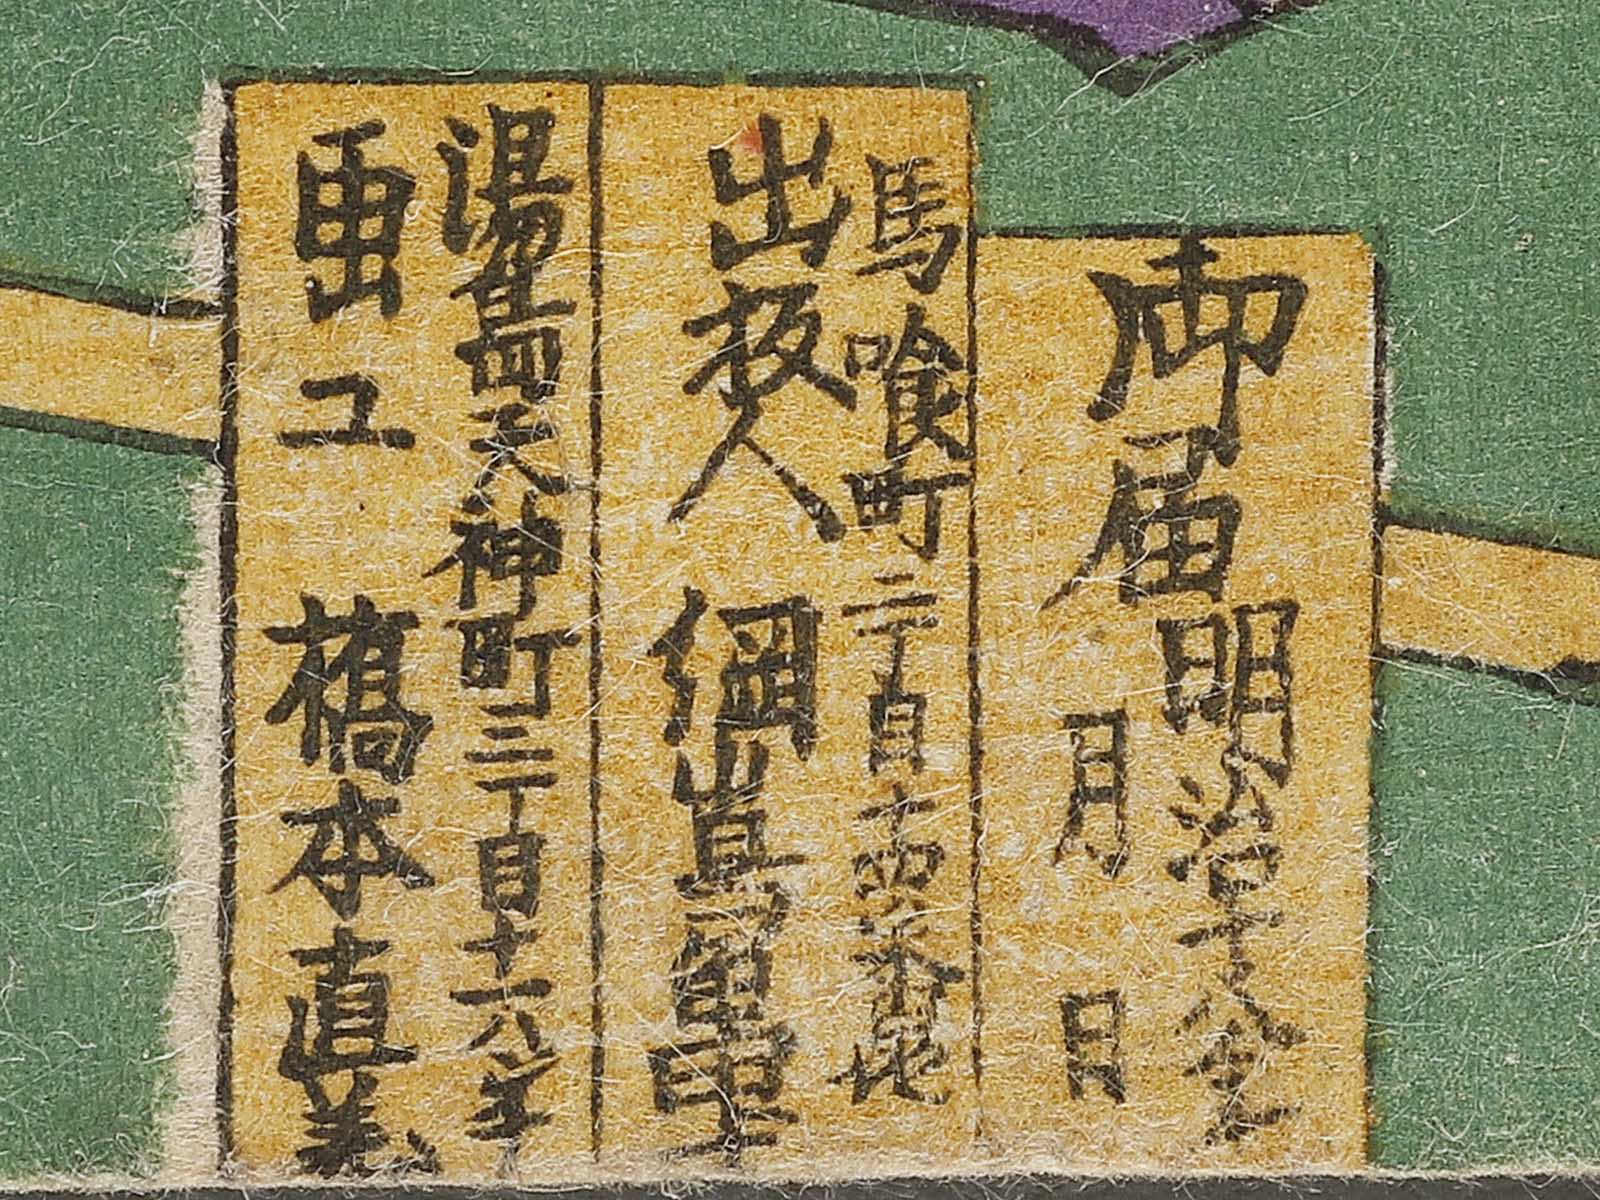 御届明治十
月　日
馬喰町二丁目十四番地
出板人　綱島
湯島天神町三丁目十
画工　橋本直義